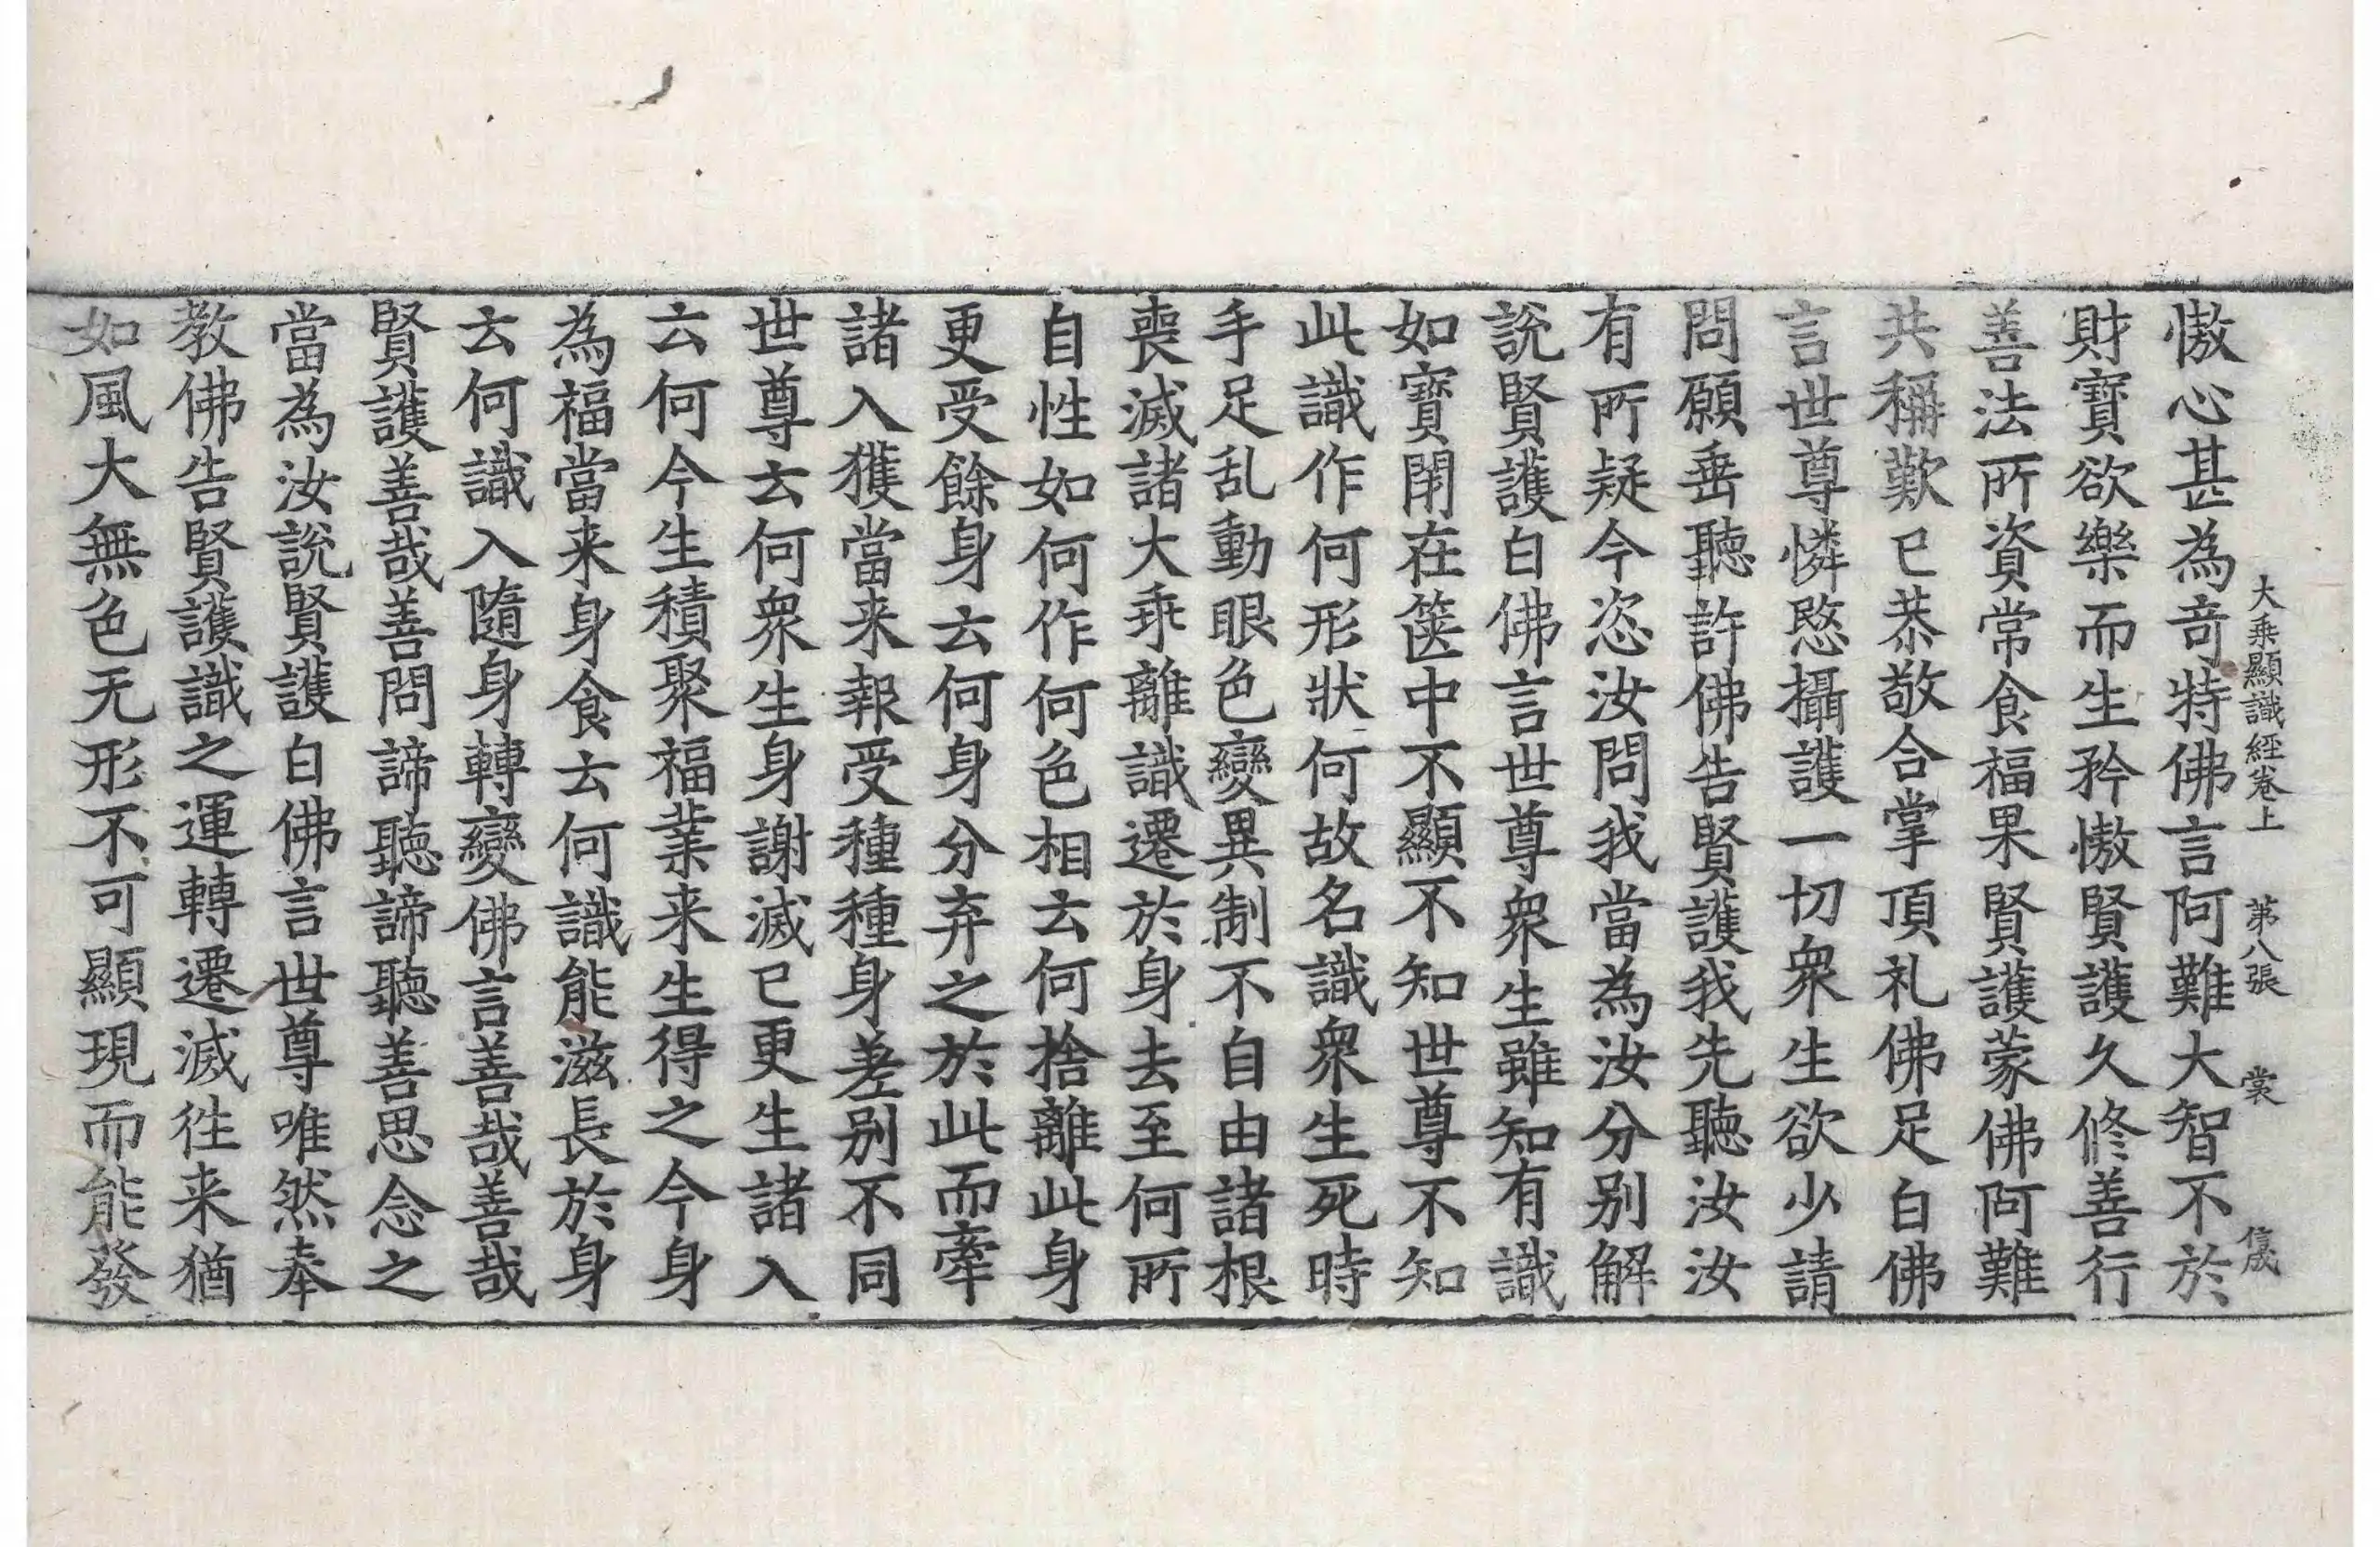 大乗顯識經卷上 第八張 裳 信成
慠心甚為竒特佛言阿難大智不於
財寶欲樂而生矜慠賢護久修善行
善法所資常食福果賢護蒙佛阿難
共稱歎已恭敬合掌頂礼佛足白佛
言世尊憐愍攝護一切衆生欲少請
問願垂聽許佛告賢護我先聽汝汝
有所疑今恣汝問我當為汝分别解
說賢護白佛言世尊衆生雖知有識
如寶閉在篋中不顯不知世尊不知
此識作何形狀何故名識衆生死時
手足乱動眼色變異制不自由諸根
喪滅諸大乖離識遷於身去至何所
自性如何作何色相云何捨離此身
更受餘身云何身分弃之於此而牽
諸入獲當来報受種種身差别不同
世尊云何衆生身謝滅已更生諸入
云何今生積聚福業来生得之今身
為福當来身食云何識能滋長於身
云何識入隨身轉變佛言善哉善哉
賢護善哉善問諦聽諦聽善思念之
當為汝說賢護白佛言世尊唯然奉
教佛告賢護識之運轉遷滅徃来猶
如風大無色无形不可顯現而能發